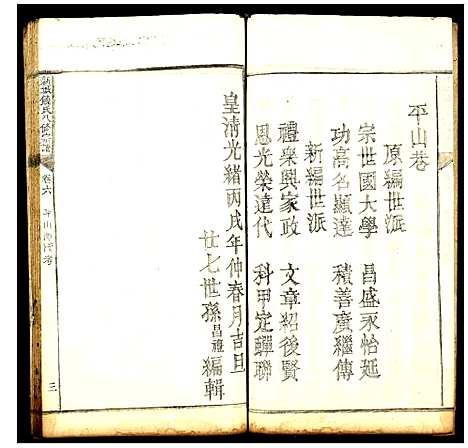 平山巷
原編世派
宗世國大學　昌盛永怡延
功高名顯達　積善廣繼傳
新編世派
禮樂興家政　文章紹後賢
恩光榮達代　科甲定驊聯
皇清光緒丙戌年仲春月吉旦
廿七世孫昌禮編輯
卷六
三